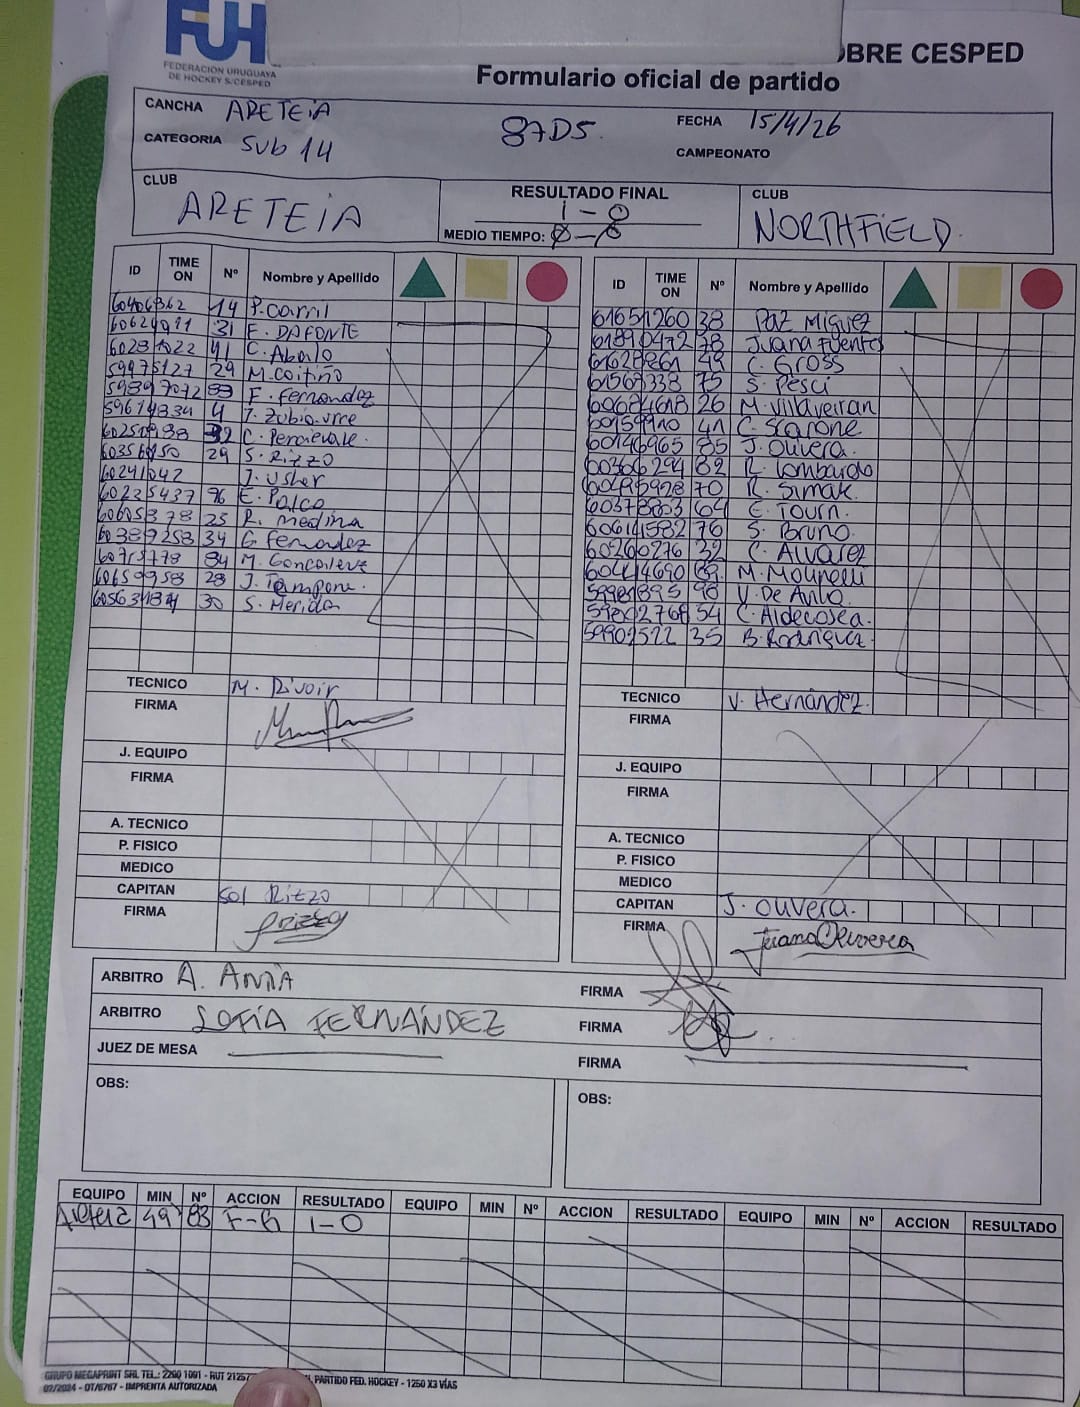 FUH
FEDERACIÓN URUGUAYA
DE HOCKEY S/CESPED
OBRE CESPED
Formulario oficial de partido
CANCHA ARETEIA
87DS.
FECHA 15/4/26
CATEGORIA SUB 14
CAMPEONATO
CLUB
ARETEIA
RESULTADO FINAL
1-0
MEDIO TIEMPO: 0-0
CLUB
NORTHFIELD.
ID TIME ON Nº Nombre y Apellido
14 P. Carril
31 E. DAFONTE
41 C. Abalo
29 M. Coitiño
F. Fernandez
4 J.
C. Percievale.
60356950 29 S. Rizzo
60241042 J. Usher
60225437 96 E. Palco
60605878 23 R. Medina
60389258 34 G. Fernandez
M.
60659958 28 J.
30 S. Merida
TECNICO M. Rivoir
FIRMA
J. EQUIPO
FIRMA
A. TECNICO
P. FISICO
MEDICO
CAPITAN Sol Rizzo
FIRMA
ID TIME ON Nº Nombre y Apellido
61651260 38 Paz Miguez
61890472 78 Juana Fuentes
C. Gross
61567338 75 S. Pesci
60684618 26 M. Villaveiran
60159910 41 C. Scarone
60146965 85 J. Olivera.
60306294 82 R. Lombardo
60495928 70 R. Simak.
60378803 64 E. Tourn.
60614582 76 S. Bruno.
60260276 32 C. Alvarez
M.
98 V. De Avila.
59802768 54 C. Aldecosea.
59902522 35 B. Rodriguez.
TECNICO V. Hernández.
FIRMA
J. EQUIPO
FIRMA
A. TECNICO
P. FISICO
MEDICO
CAPITAN J. Olivera.
FIRMA Juana Olivera
ARBITRO A. FIRMA
ARBITRO SOFÍA FERNÁNDEZ FIRMA
JUEZ DE MESA FIRMA
OBS: OBS:
EQUIPO MIN Nº ACCION RESULTADO EQUIPO MIN Nº ACCION RESULTADO EQUIPO MIN Nº ACCION RESULTADO
Areteia 49' 83 F-G 1-0
GRUPO MEGAPRINT SRL TEL.: 2200 1091 - RUT 21257 PARTIDO FED. HOCKEY - 1250 X3 VÍAS
02/2024 - OT/6767 - IMPRENTA AUTORIZADA